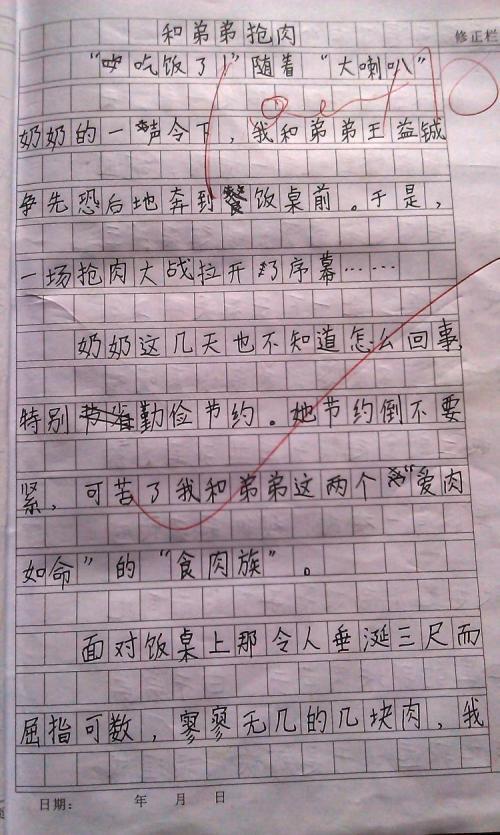 和弟弟抢肉
修正栏
“吃饭了！”随着“大喇叭”
奶奶的一声令下，我和弟弟王益铖
争先恐后地奔到饭桌前。于是，
一场抢肉大战拉开了序幕……
奶奶这几天也不知道怎么回事，
特别勤俭节约。她节约倒不要
紧，可苦了我和弟弟这两个“爱肉
如命”的“食肉族”。
面对饭桌上那令人垂涎三尺而
屈指可数，寥寥无几的几块肉，我
日期： 年 月 日